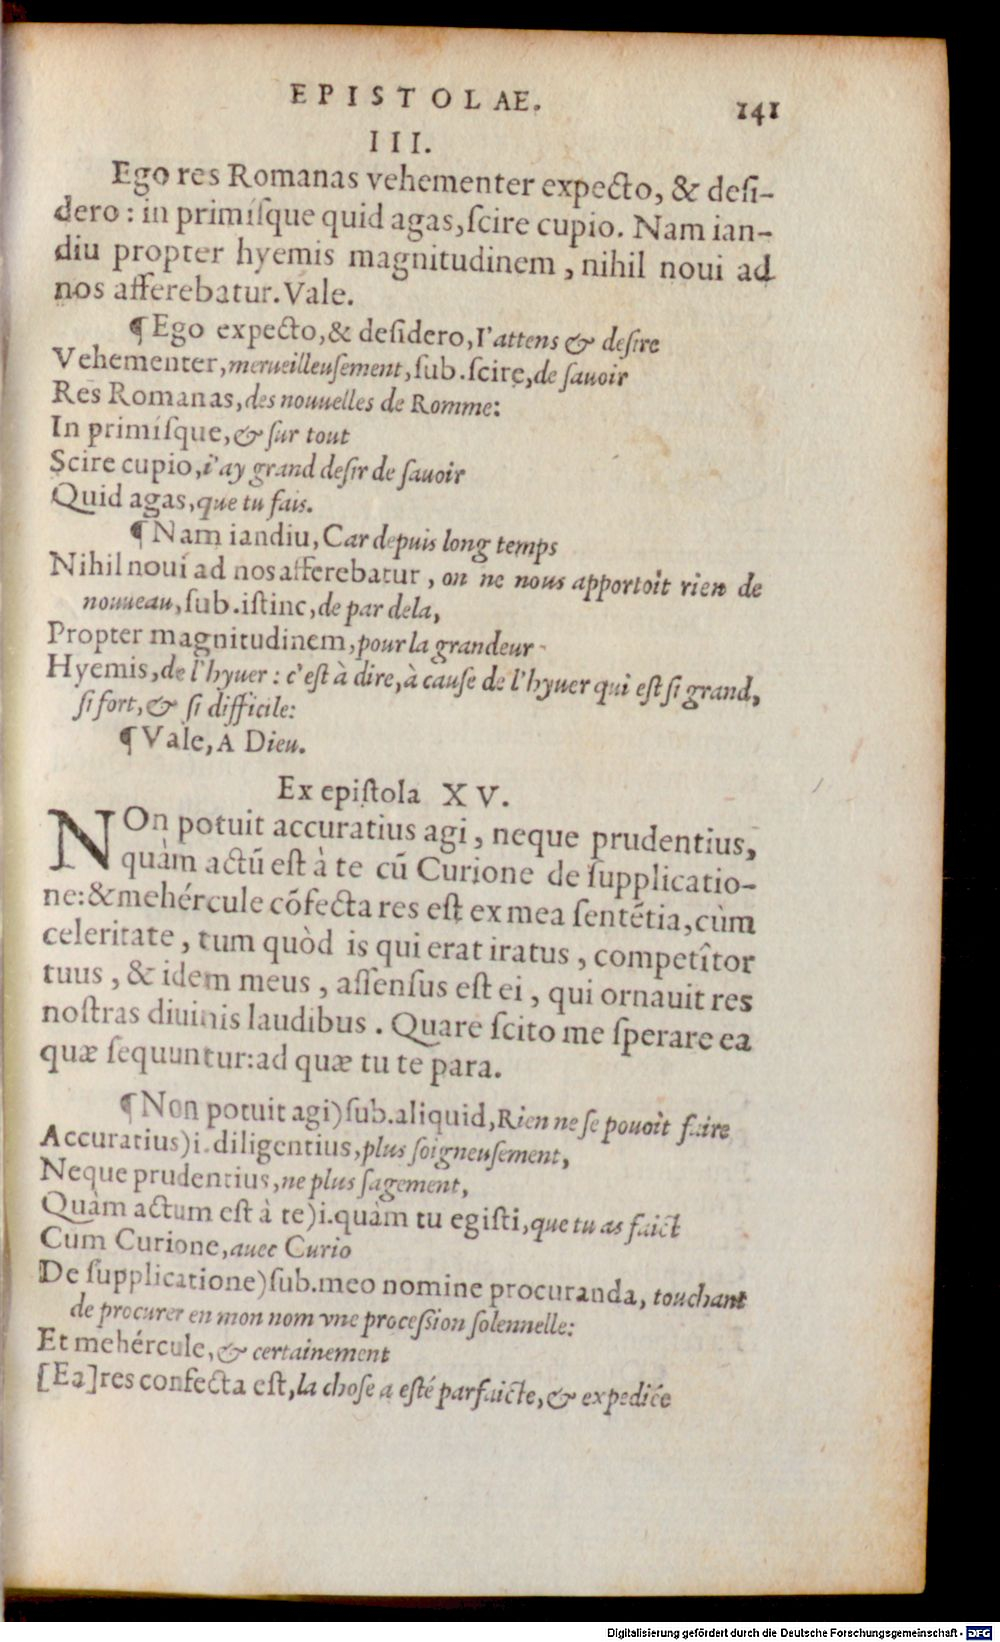 EPISTOLAE. 141
III.
Ego res Romanas vehementer expecto, & desi-
dero: in primísque quid agas, scire cupio. Nam ian-
diu propter hyemis magnitudinem, nihil noui ad
nos afferebatur. Vale.
¶ Ego expecto, & desidero, I'attens & desire
Vehementer, merueilleusement, sub. scire, de sauoir
Res Romanas, des nouuelles de Romme:
In primísque, & sur tout
Scire cupio, i'ay grand desir de sauoir
Quid agas, que tu fais.
¶ Nam iandiu, Car depuis long temps
Nihil noui ad nos afferebatur, on ne nous apportoit rien de
nouueau, sub. istinc, de par dela,
Propter magnitudinem, pour la grandeur
Hyemis, de l'hyuer: c'est à dire, à cause de l'hyuer qui est si grand,
si fort, & si difficile:
¶ Vale, A Dieu.
Ex epistola XV.
NOn potuit accuratius agi, neque prudentius,
quàm actũ est à te cũ Curione de supplicatio-
ne: & mehércule cõfecta res est ex mea sentẽtia, cùm
celeritate, tum quòd is qui erat iratus, competîtor
tuus, & idem meus, assensus est ei, qui ornauit res
nostras diuinis laudibus. Quare scito me sperare ea
quæ sequuntur: ad quæ tu te para.
¶ Non potuit agi) sub. aliquid, Rien ne se pouoit faire
Accuratius) i. diligentius, plus soigneusement,
Neque prudentius, ne plus sagement,
Quàm actum est à te) i. quàm tu egisti, que tu as faict
Cum Curione, auec Curio
De supplicatione) sub. meo nomine procuranda, touchant
de procurer en mon nom vne procession solennelle:
Et mehércule, & certainement
[Ea] res confecta est, la chose a esté parfaicte, & expediée
Digitalisierung gefördert durch die Deutsche Forschungsgemeinschaft - DFG